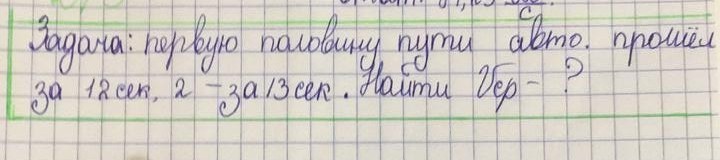 Задача: первую половину пути авто. прошёл
за 12 сек, 2 - за 13 сек. Найти Vср - ?